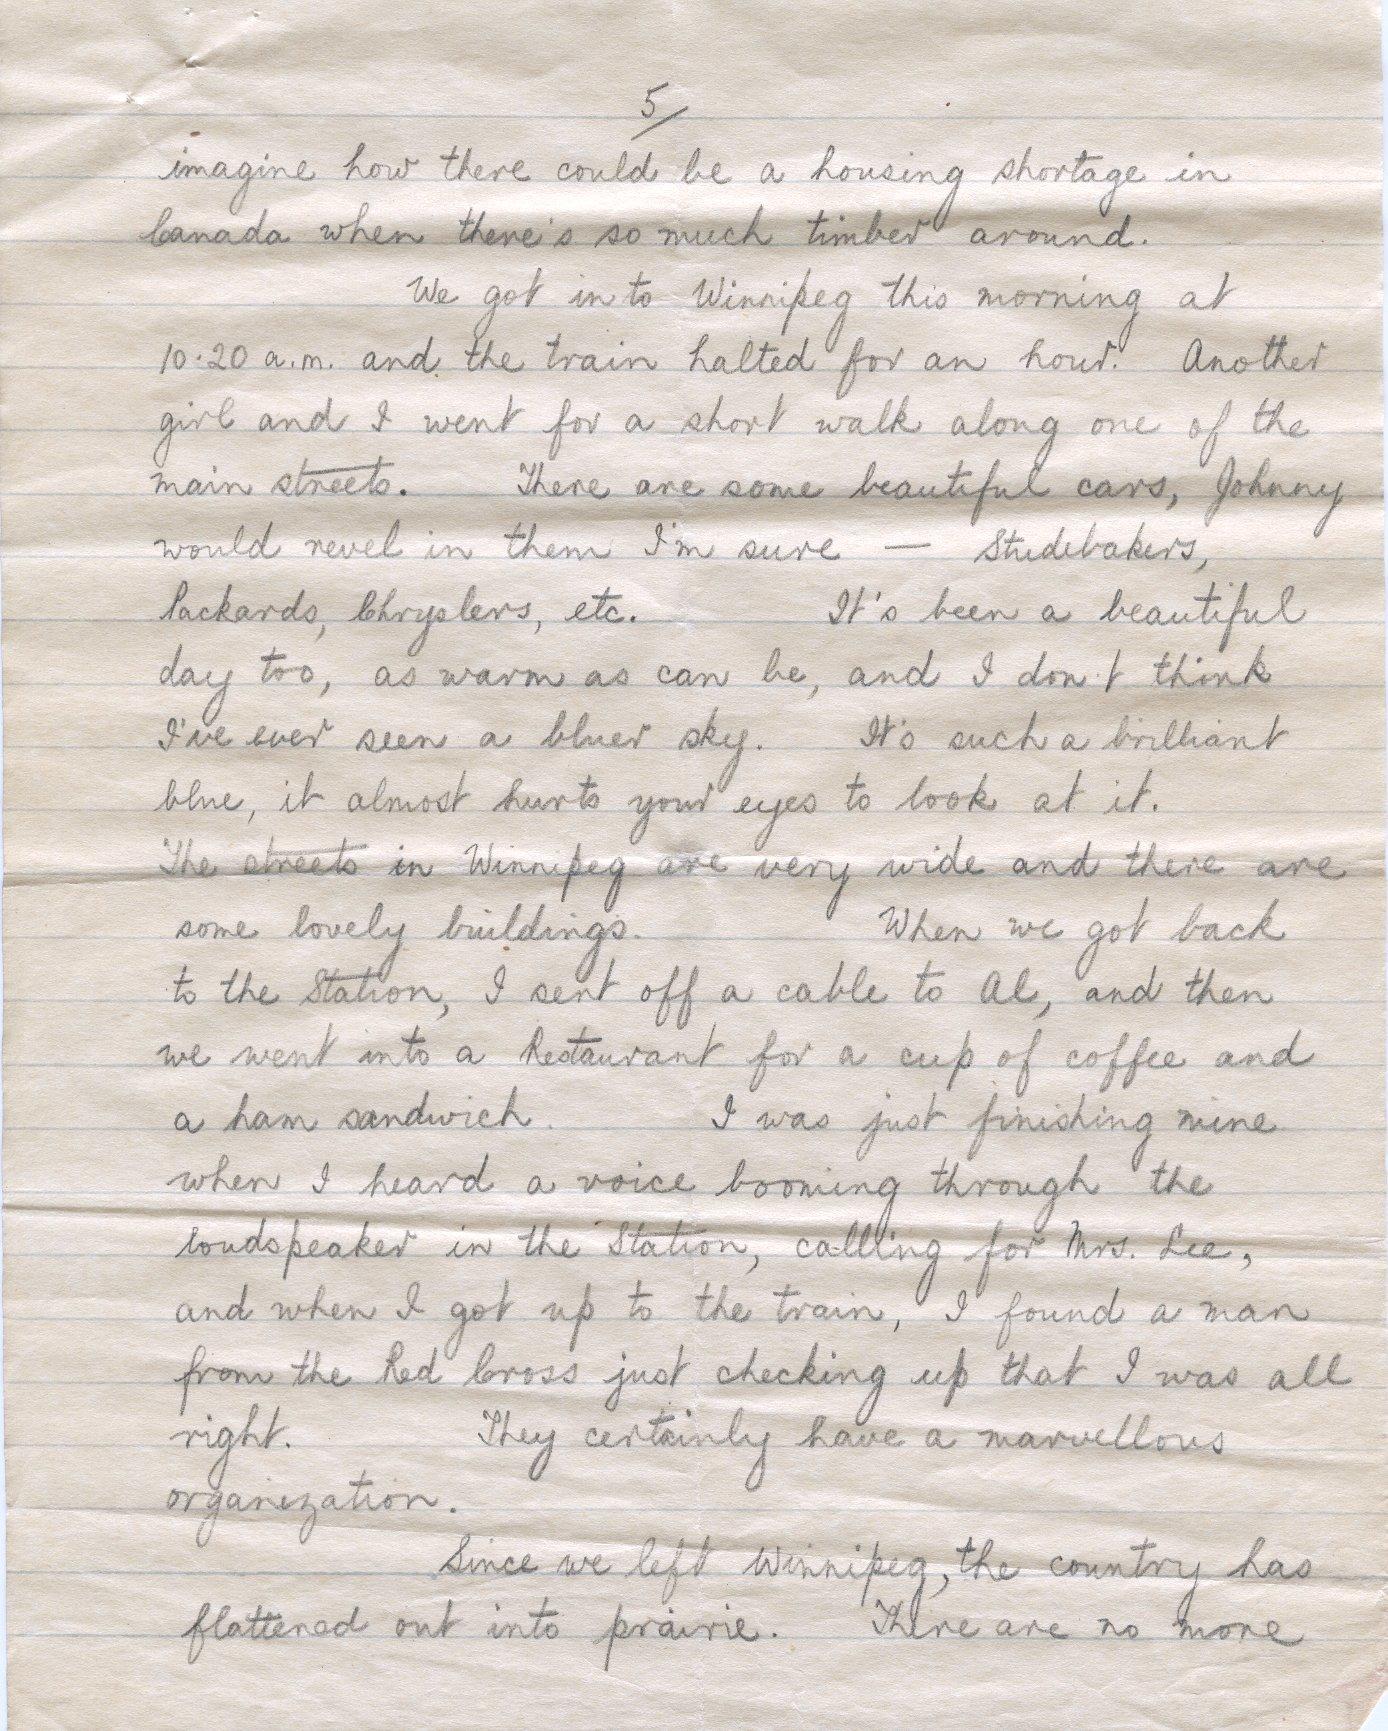 5/
imagine how there could be a housing shortage in
Canada when there's so much timber around.
We got into Winnipeg this morning at
10.20 a.m. and the train halted for an hour. Another
girl and I went for a short walk along one of the
main streets. There are some beautiful cars, Johnny
would revel in them I'm sure — Studebakers,
Packards, Chryslers, etc. It's been a beautiful
day too, as warm as can be, and I don't think
I've ever seen a bluer sky. It's such a brilliant
blue, it almost hurts your eyes to look at it.
The streets in Winnipeg are very wide and there are
some lovely buildings. When we got back
to the Station, I sent off a cable to Al, and then
we went into a Restaurant for a cup of coffee and
a ham sandwich. I was just finishing mine
when I heard a voice booming through the
loudspeaker in the Station, calling for Mrs. Lee,
and when I got up to the train, I found a man
from the Red Cross just checking up that I was all
right. They certainly have a marvellous
organization.
Since we left Winnipeg, the country has
flattened out into prairie. There are no more